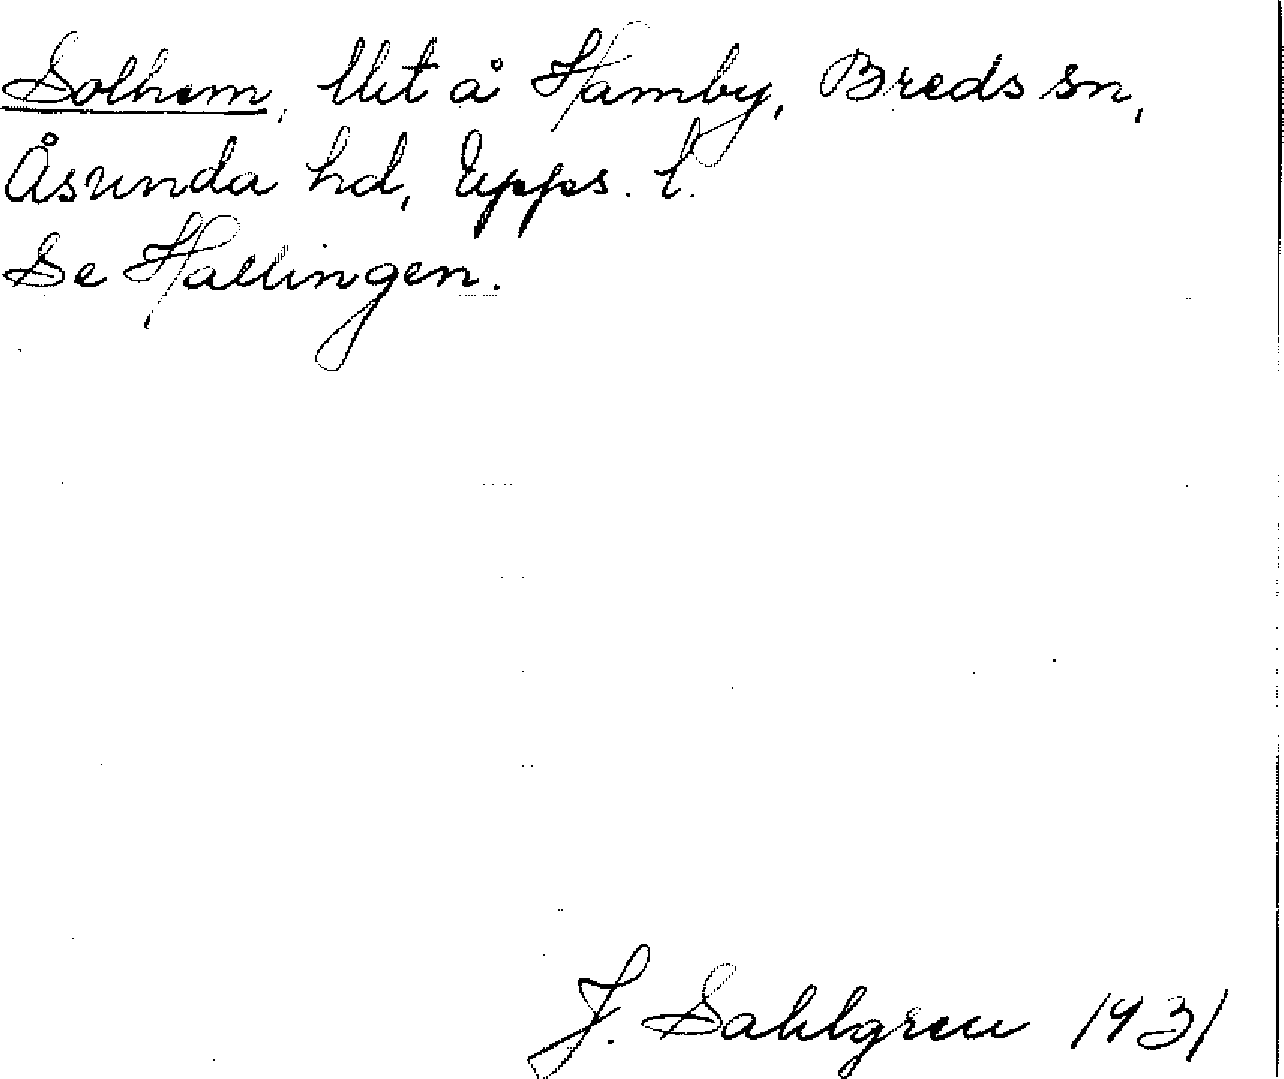 Solhem, Utt å Hamby, Breds sn,
Åsunda hd, Upps. l.
Se Hallingen.
J. Sahlgren 1931